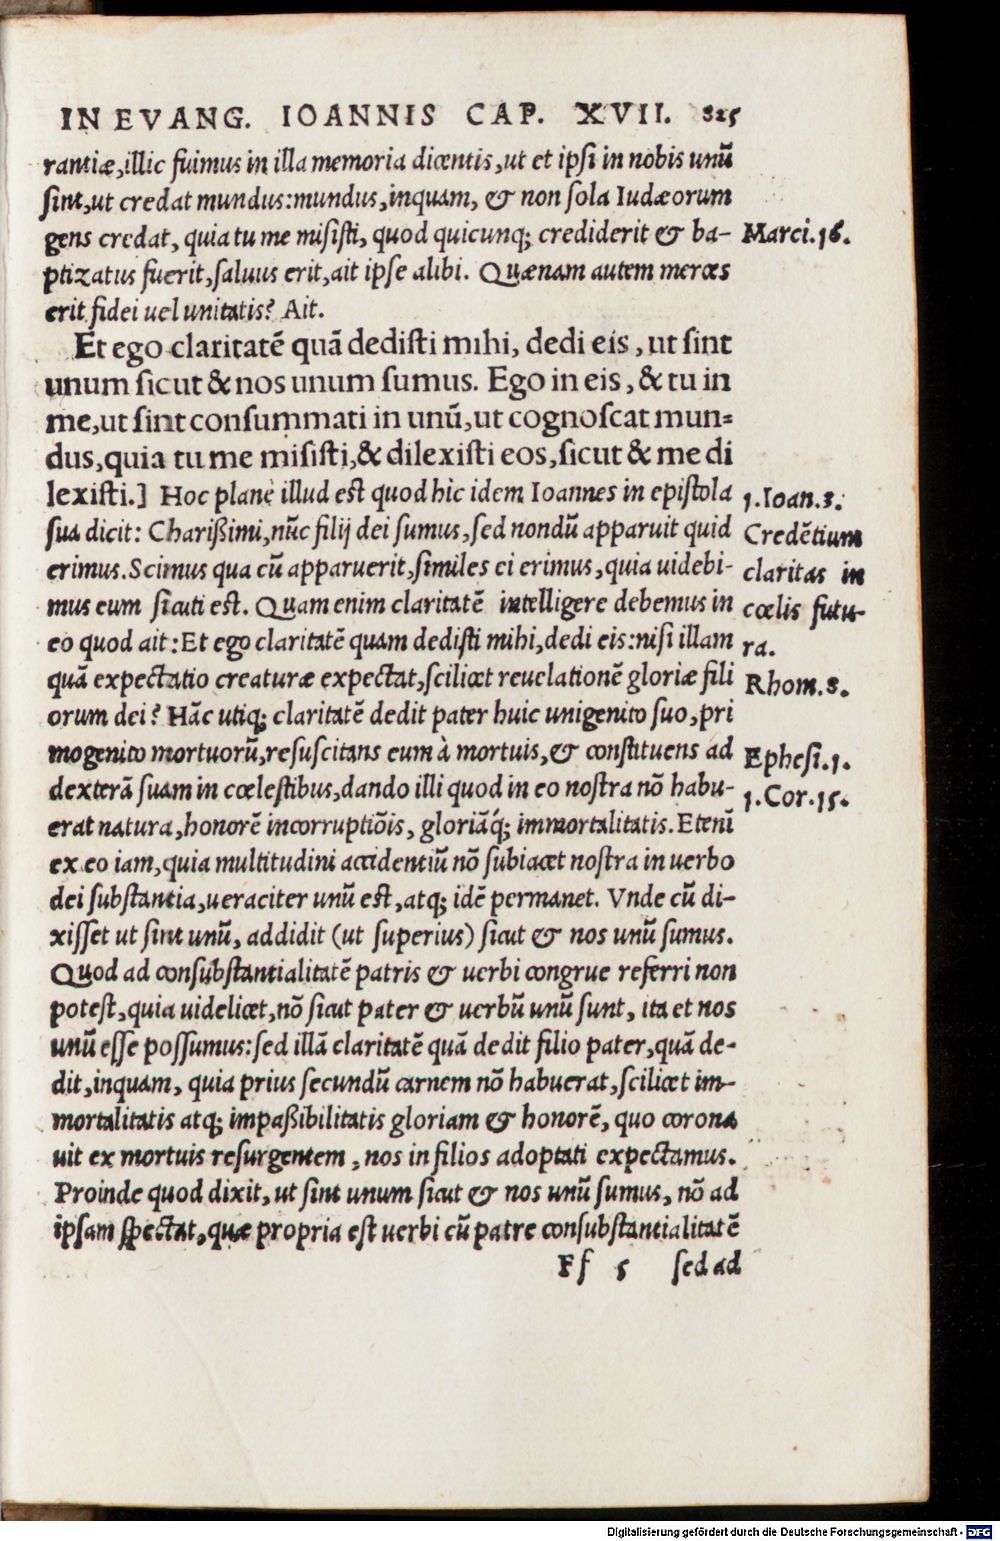 IN EVANG. IOANNIS CAP. XVII. 825
rantiæ,illic fuimus in illa memoria dicentis,ut et ipsi in nobis unũ
sint,ut credat mundus:mundus,inquam, & non sola Iudæorum
gens credat, quia tu me misisti, quod quicunq; crediderit & ba-
Marci.16.
ptizatus fuerit,saluus erit,ait ipse alibi. Quænam autem merces
erit fidei uel unitatis? Ait.
Et ego claritatẽ quã dedisti mihi, dedi eis, ut sint
unum sicut & nos unum sumus. Ego in eis, & tu in
me,ut sint consummati in unũ,ut cognoscat mun=
dus,quia tu me misisti,& dilexisti eos,sicut & me di
lexisti.] Hoc planè illud est quod hic idem Ioannes in epistola
1.Ioan.3.
sua dicit: Charißimi,nũc filij dei sumus,sed nondũ apparuit quid
Credẽtium
erimus.Scimus qua cũ apparuerit,similes ei erimus,quia uidebi-
claritas in
mus eum sicuti est. Quam enim claritatẽ intelligere debemus in
cœlis futu-
eo quod ait:Et ego claritatẽ quam dedisti mihi,dedi eis:nisi illam
ra.
quã expectatio creaturæ expectat,scilicet reuelationẽ gloriæ fili
Rhom.8.
orum dei? Hãc utiq; claritatẽ dedit pater huic unigenito suo,pri
mogenito mortuorũ,resuscitans eum à mortuis,& constituens ad
Ephesi.1.
dexterã suam in cœlestibus,dando illi quod in eo nostra nõ habu-
1.Cor.15.
erat natura,honorẽ incorruptiõis, gloriãq́; immortalitatis.Etenĩ
ex eo iam,quia multitudini accidentiũ nõ subiacet nostra in uerbo
dei substantia,ueraciter unũ est,atq; idẽ permanet. Vnde cũ di-
xisset ut sint unũ, addidit (ut superius) sicut & nos unũ sumus.
Quod ad consubstantialitatẽ patris & uerbi congrue referri non
potest,quia uidelicet,nõ sicut pater & uerbũ unũ sunt, ita et nos
unũ esse possumus:sed illã claritatẽ quã dedit filio pater,quã de-
dit,inquam, quia prius secundũ carnem nõ habuerat,scilicet im-
mortalitatis atq; impaßibilitatis gloriam & honorẽ, quo corona
uit ex mortuis resurgentem, nos in filios adoptati expectamus.
Proinde quod dixit, ut sint unum sicut & nos unũ sumus, nõ ad
ipsam spectat,quæ propria est uerbi cũ patre consubstantialitatẽ
Ff 5 sed ad
Digitalisierung gefördert durch die Deutsche Forschungsgemeinschaft - DFG